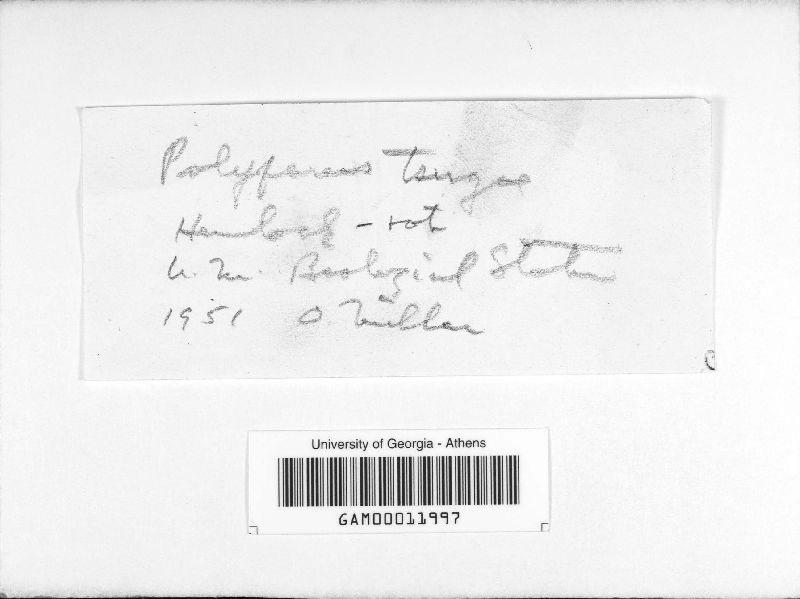 Polyporus tsugae
Hemlock - rot
U. M. Biological Station
1951 O Miller
University of Georgia - Athens
GAM00011997